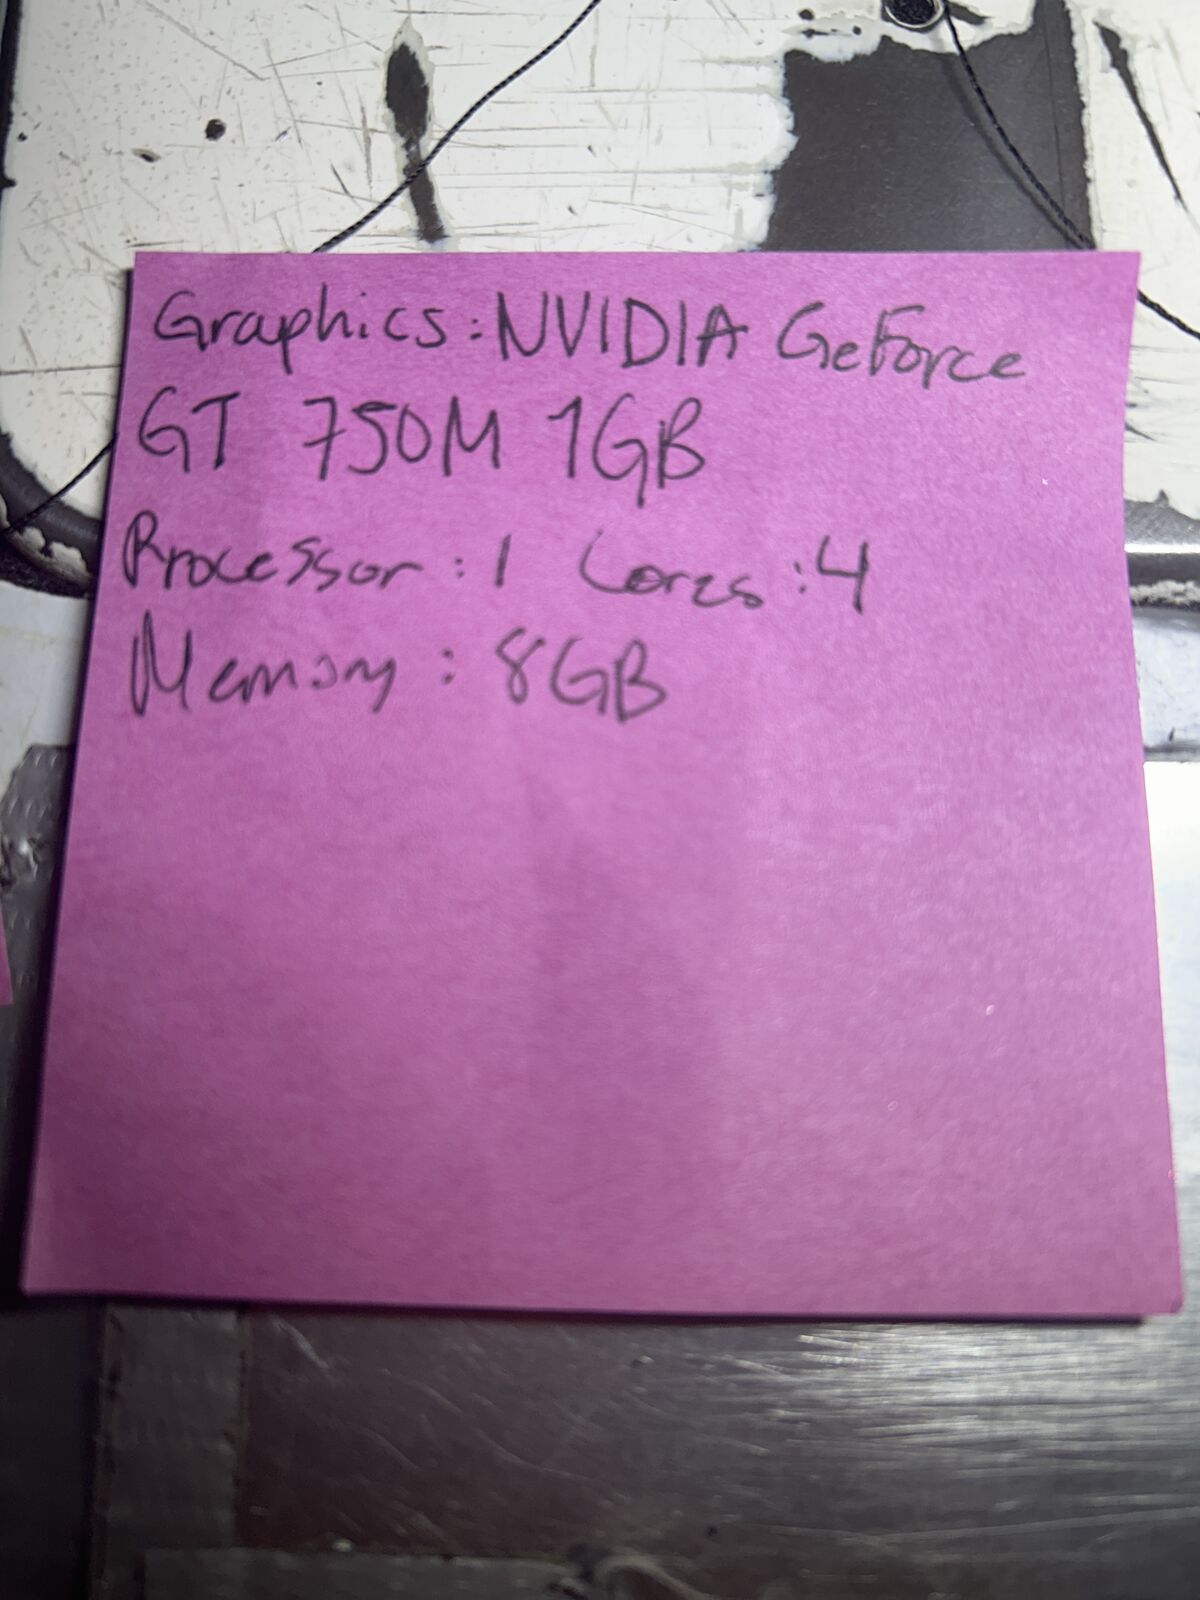 Graphics: NVIDIA GeForce
GT 750M 1GB
Processor: 1 Cores: 4
Memory: 8GB